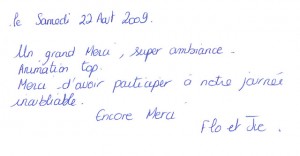 Le Samedi 22 Août 2009.
Un grand Merci, super ambiance.
Animation top.
Merci d'avoir participer à notre journée
inoubliable.
Encore Merci
Flo et